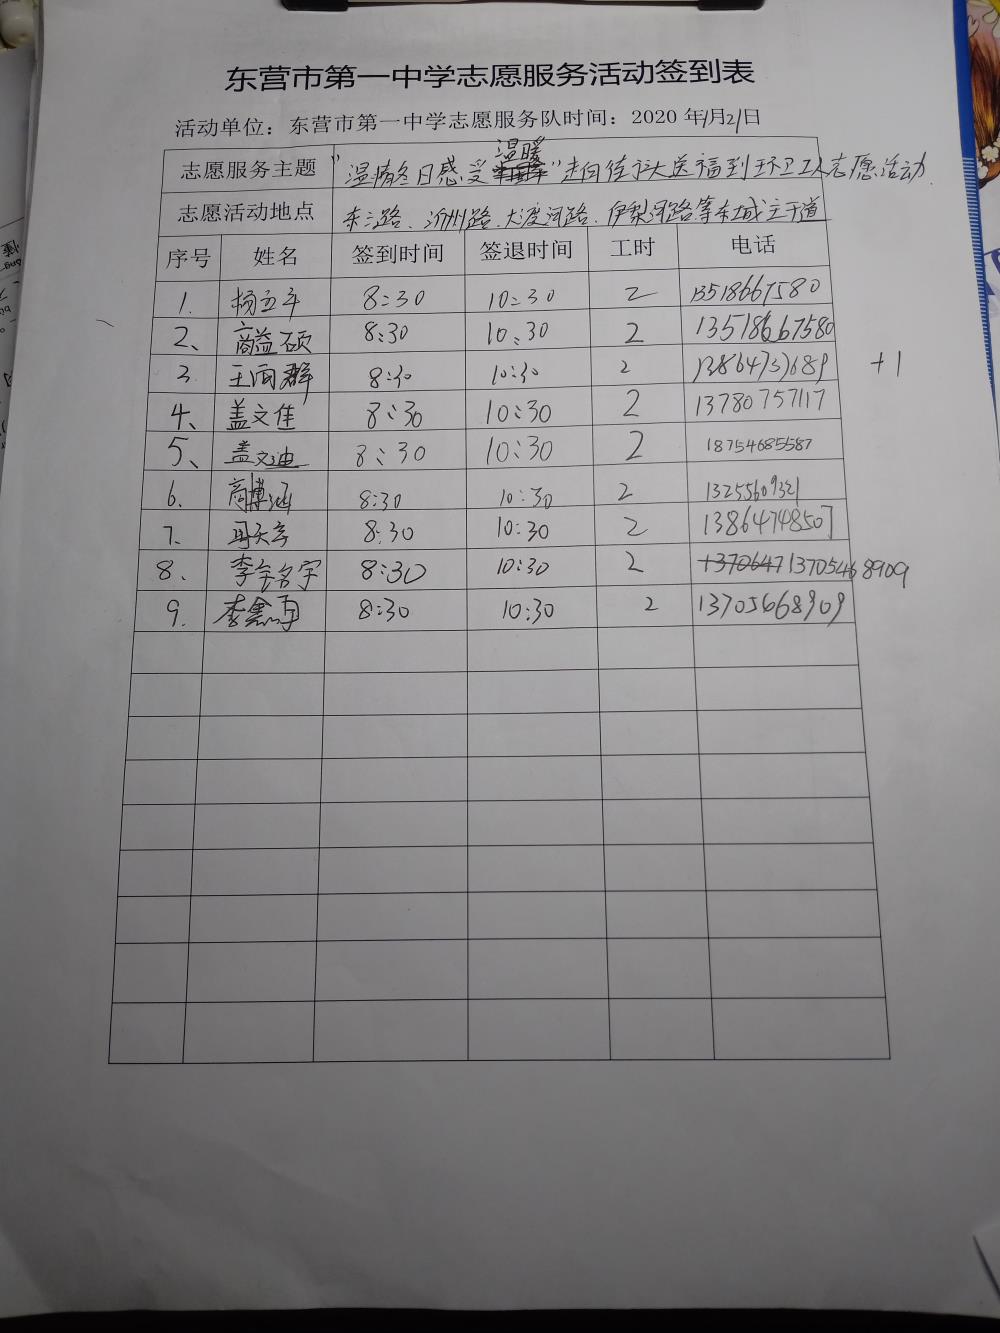 东营市第一中学志愿服务活动签到表
活动单位：东营市第一中学志愿服务队时间：2020 年1月21日
志愿服务主题 "温情冬日感受温暖"走向街头送福到环卫工人志愿活动
志愿活动地点 东三路、沂州路、大渡河路、伊犁河路等东城主干道
序号 姓名 签到时间 签退时间 工时 电话
1. 8:30 10:30 2 13518667580
2、 商益硕 8:30 10:30 2 13518667580
3. 王雨群 8:30 10:30 2 13864737689 +1
4、 盖文佳 8:30 10:30 2 13780757117
5、 盖文迪 8:30 10:30 2 18754685587
6. 商博涵 8:30 10:30 2 13255609321
7. 8:30 10:30 2 13864748507
8. 李名宇 8:30 10:30 2 13705468909
9. 李 8:30 10:30 2 13705668909